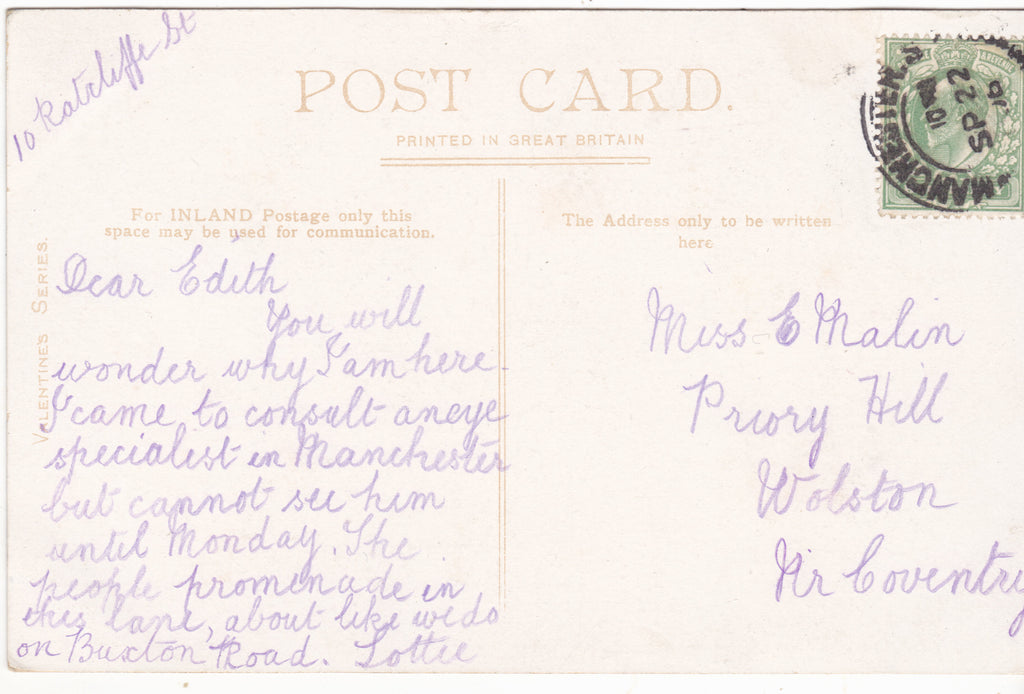 10 Ratcliffe St
POST CARD.
PRINTED IN GREAT BRITAIN
For INLAND Postage only this
space may be used for communication.
The Address only to be written
here
VALENTINE'S SERIES.
MANCHESTER
10
SP 22
10
Dear Edith
You will
wonder why I am here.
I came to consult an eye
specialist in Manchester
but cannot see him
until Monday. The
people promenade in
this lane, about like we do
on Buxton Road. Lottie
Miss E Malin
Priory Hill
Wolston
Nr Coventry